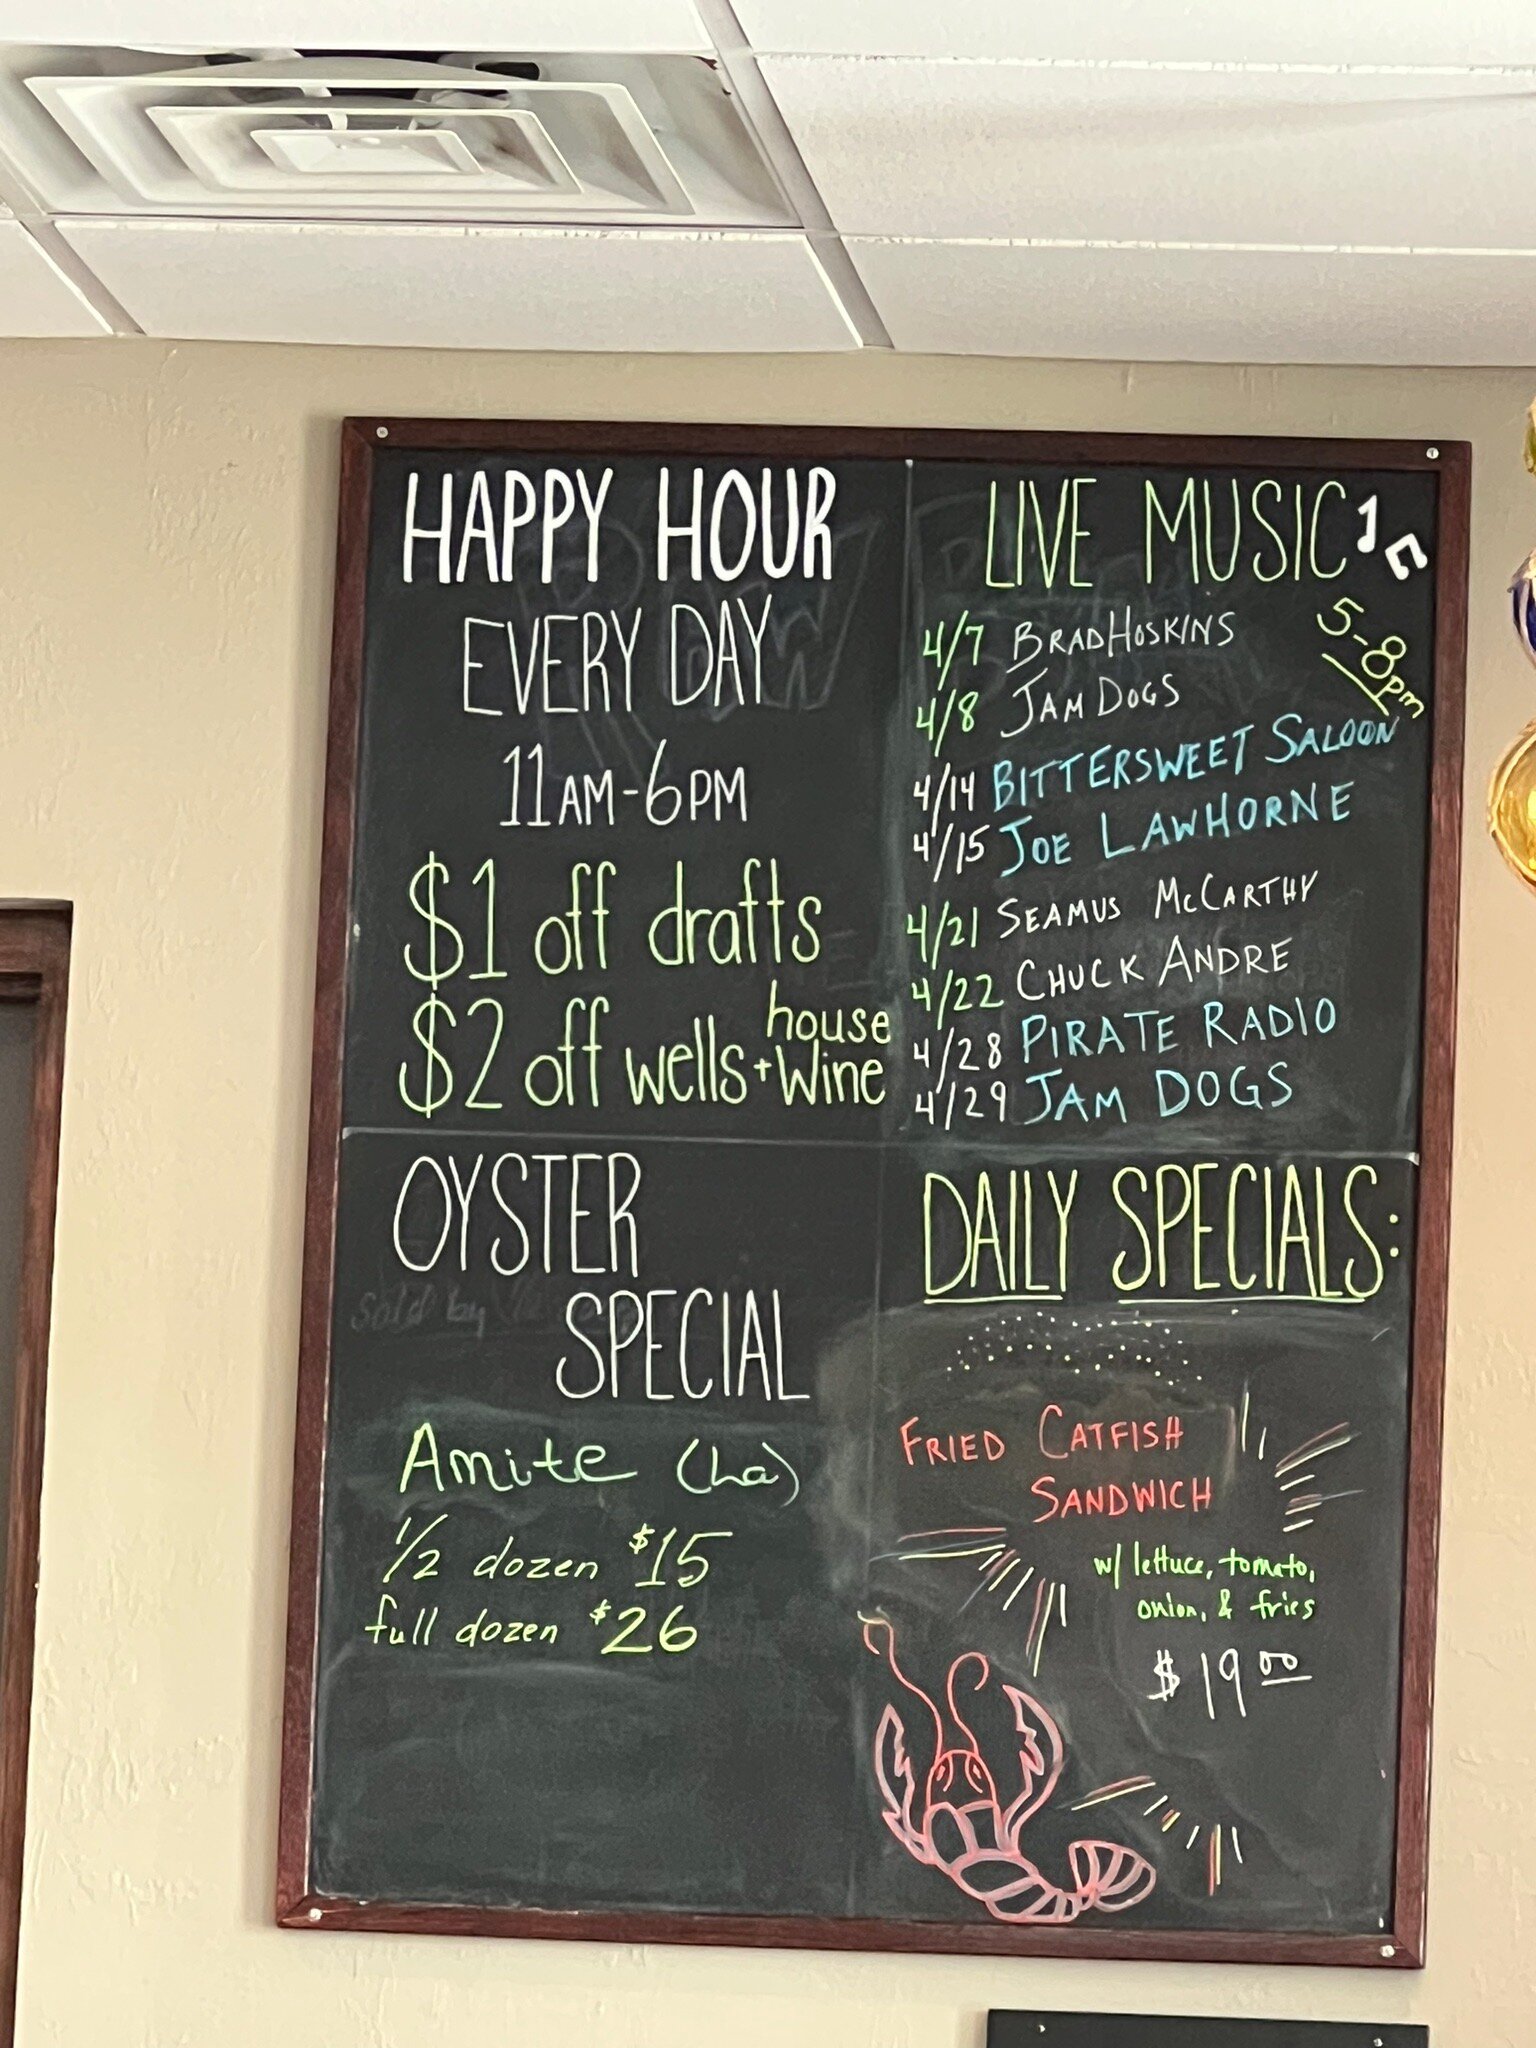 HAPPY HOUR
EVERY DAY
11AM-6PM
$1 off drafts
$2 off wells + house wine
LIVE MUSIC
5-8pm
4/7 BRAD HOSKINS
4/8 JAM DOGS
4/14 BITTERSWEET SALOON
4/15 JOE LAWHORNE
4/21 SEAMUS McCARTHY
4/22 CHUCK ANDRE
4/28 PIRATE RADIO
4/29 JAM DOGS
OYSTER
SPECIAL
sold by
Amite (La)
1/2 dozen $15
full dozen $26
DAILY SPECIALS:
FRIED CATFISH
SANDWICH
w/ lettuce, tomato,
onion, & fries
$19.00